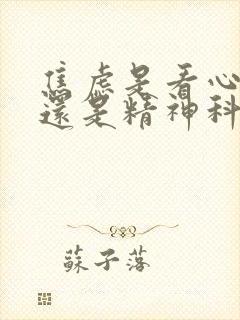 焦虑是看心
還是精神科
蘇子落